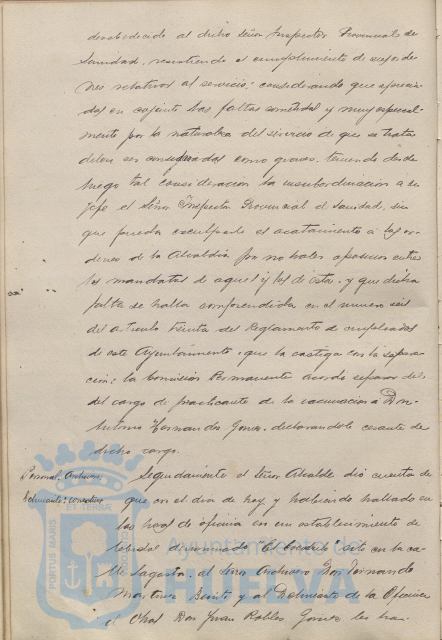 desobedecido al dicho Señor Inspector Provincial de
Sanidad, resistiendo el cumplimiento de sus órde-
nes relativas al servicio; considerando que aprecia-
das en conjunto las faltas cometidas y muy especial-
mente por la naturaleza del servicio de que se trata
deben ser consideradas como graves, teniendo desde
luego tal consideración la insubordinación a su
Jefe el Señor Inspector Provincial de Sanidad, sin
que pueda exculparle el acatamiento a las ór-
denes de la Alcaldía por no haber oposición entre
los mandatos de aquel y los de esta, y que dicha
falta se halla comprendida en el número seis
del artículo treinta del Reglamento de empleados
de este Ayuntamiento, que la castiga con la separa-
ción; la Comisión Permanente acordó separar del
del cargo de practicante de la vacunación a Don
Antonio Hernandez Gomez, declarandole cesante de
dicho cargo.
Personal. Archivero
Delineante: 
Seguidamente el señor Alcalde dió cuenta de
que en el día de hoy y habiendo hallado en
las horas de oficina en un establecimiento de
bebidas denominado sito en la ca-
lle Sagasta, al señor Archivero Don Fernando
Martinez Benito y al Delineante de la Oficina
de Obras Don Juan Robles Gomez les ha-
PORTUS MARIS ET TERRAE
Ayuntamiento de
HUELVA